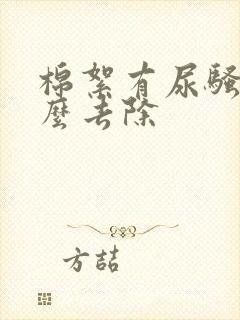 棉絮有尿骚
麽去除
方喆